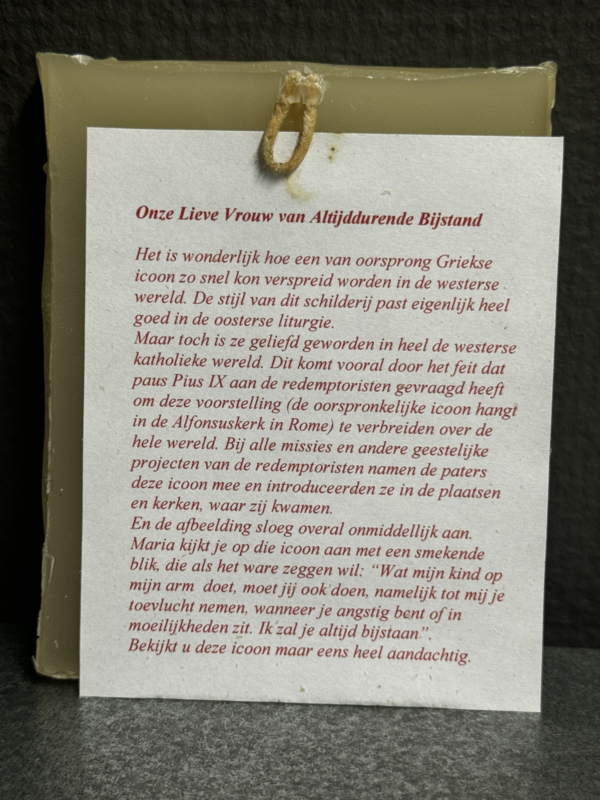 Onze Lieve Vrouw van Altijddurende Bijstand
Het is wonderlijk hoe een van oorsprong Griekse
icoon zo snel kon verspreid worden in de westerse
wereld. De stijl van dit schilderij past eigenlijk heel
goed in de oosterse liturgie.
Maar toch is ze geliefd geworden in heel de westerse
katholieke wereld. Dit komt vooral door het feit dat
paus Pius IX aan de redemptoristen gevraagd heeft
om deze voorstelling (de oorspronkelijke icoon hangt
in de Alfonsuskerk in Rome) te verbreiden over de
hele wereld. Bij alle missies en andere geestelijke
projecten van de redemptoristen namen de paters
deze icoon mee en introduceerden ze in de plaatsen
en kerken, waar zij kwamen.
En de afbeelding sloeg overal onmiddellijk aan.
Maria kijkt je op die icoon aan met een smekende
blik, die als het ware zeggen wil: “Wat mijn kind op
mijn arm doet, moet jij ook doen, namelijk tot mij je
toevlucht nemen, wanneer je angstig bent of in
moeilijkheden zit. Ik zal je altijd bijstaan”.
Bekijkt u deze icoon maar eens heel aandachtig.